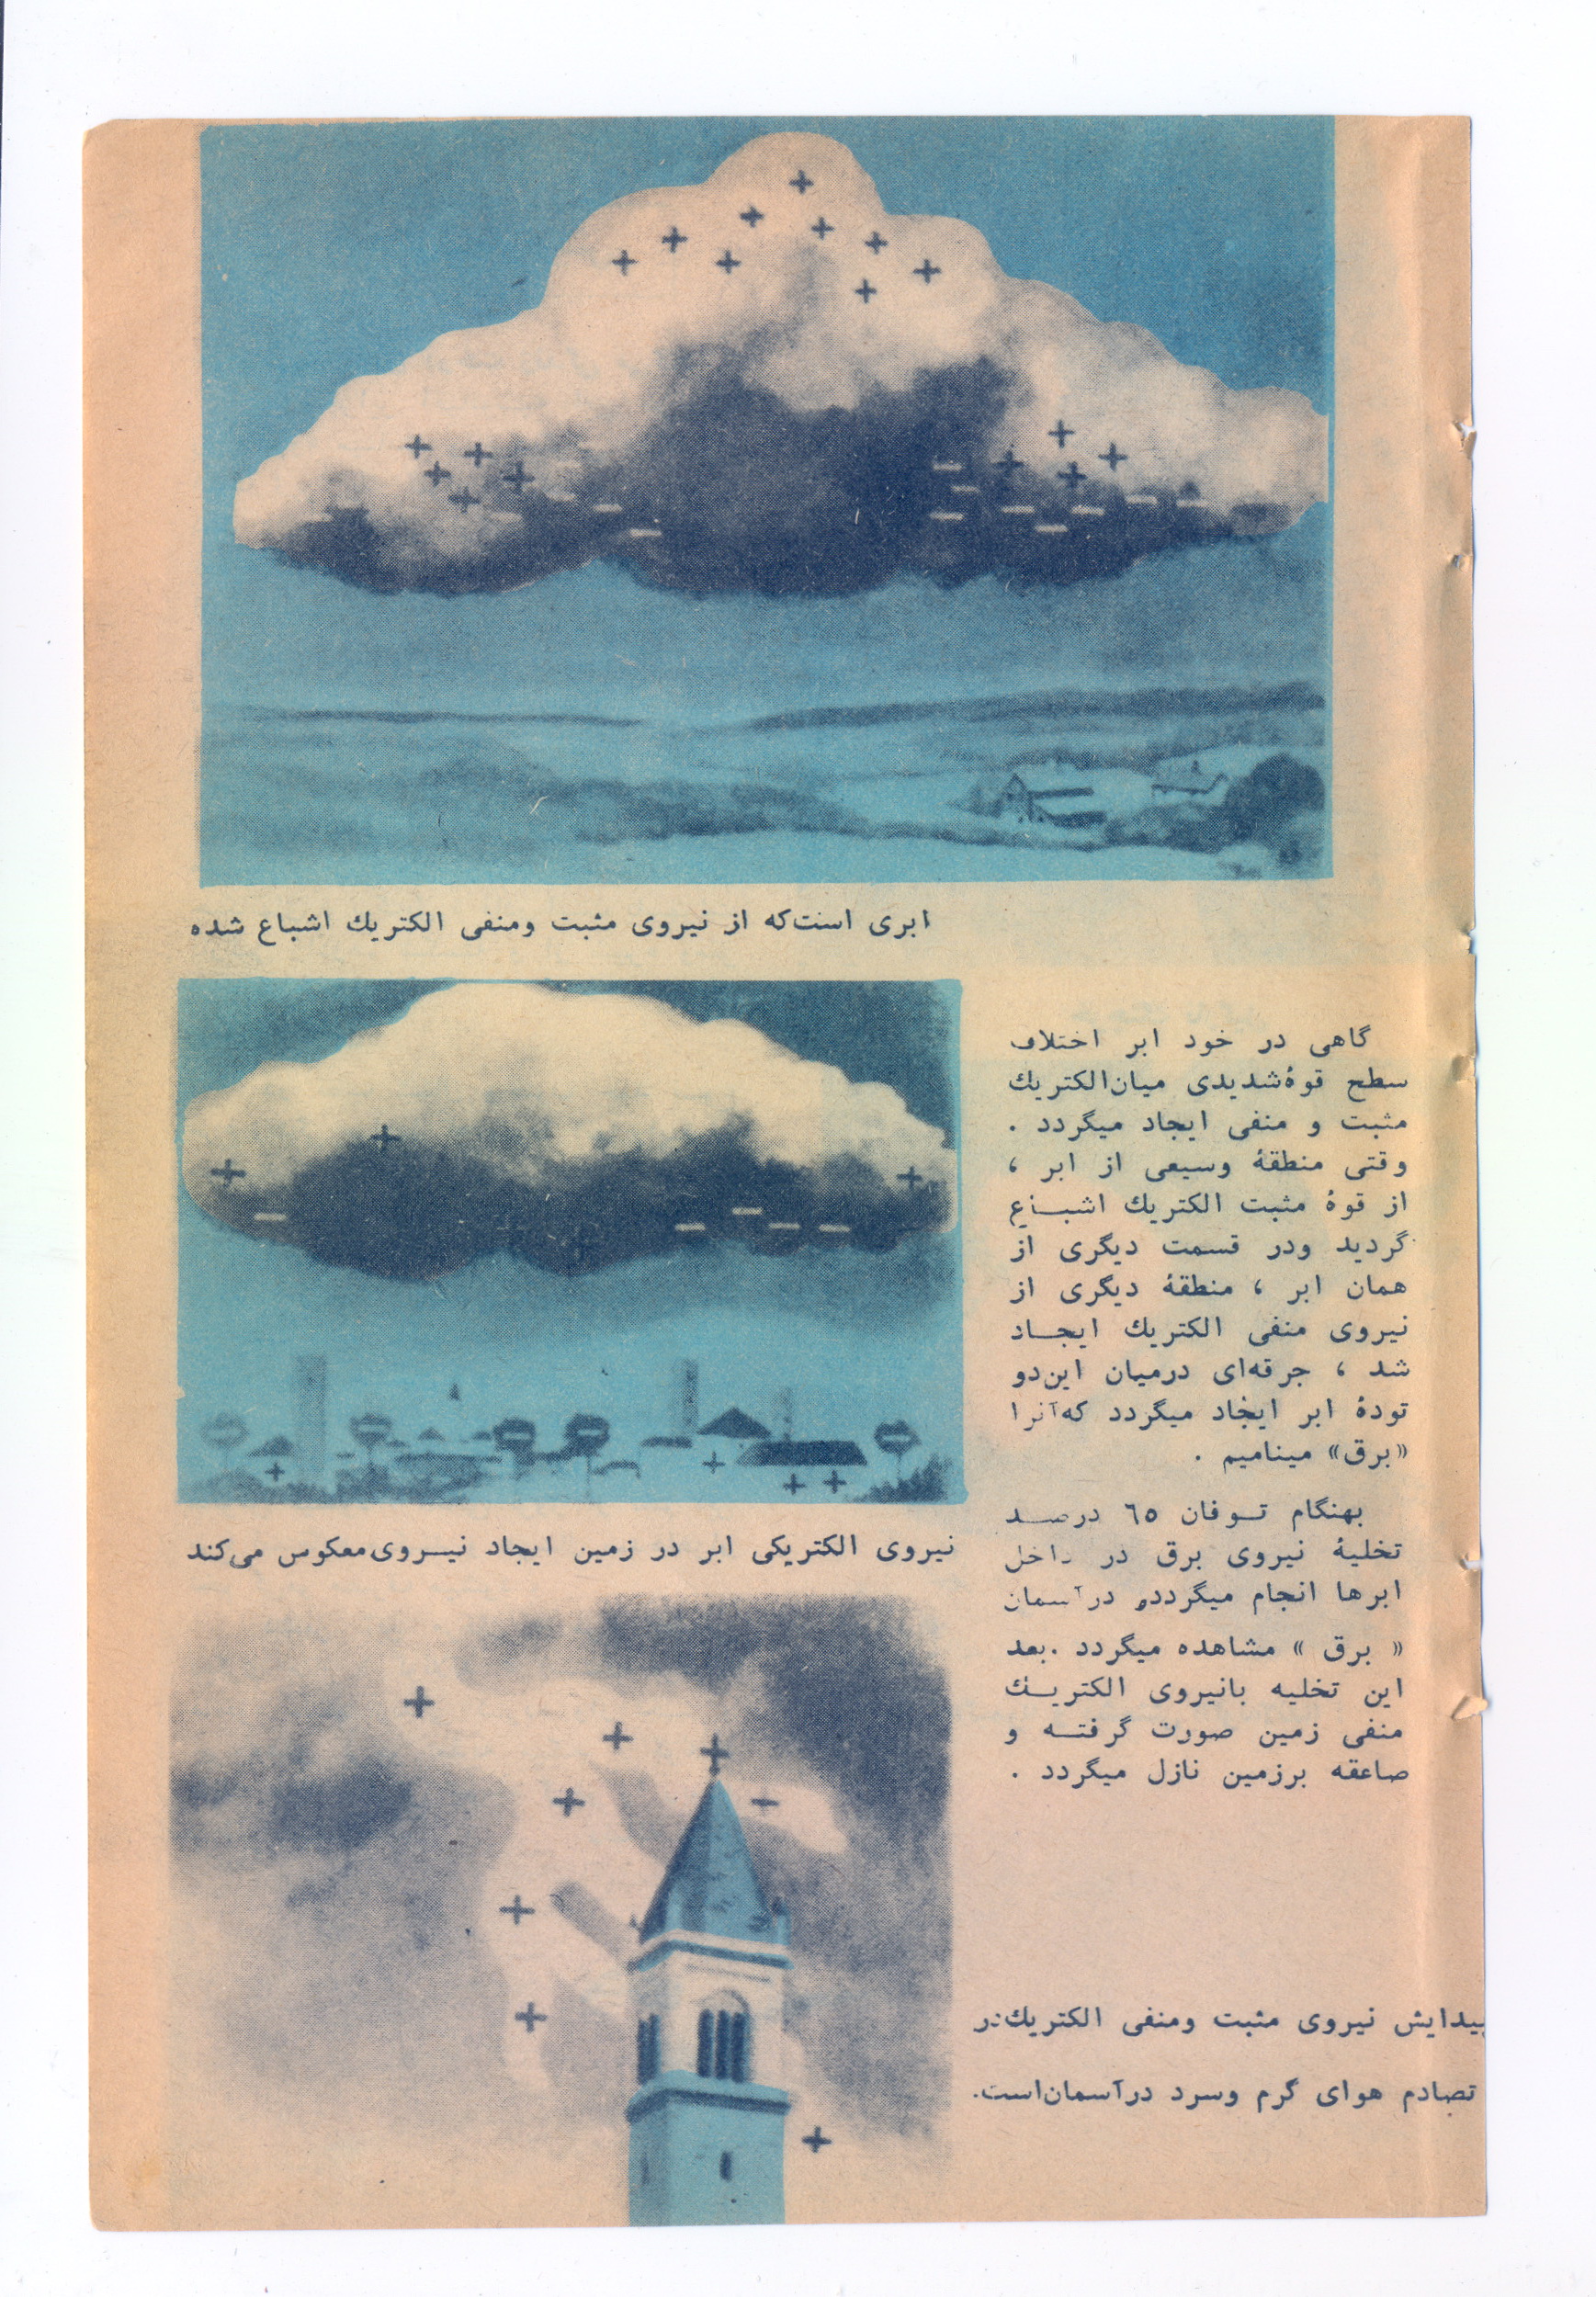 ابری است‌که از نیروی مثبت ومنفی الکتریك اشباع شده
گاهی در خود ابر اختلاف
سطح قوهٔ‌شدیدی میان‌الکتریك
مثبت و منفی ایجاد میگردد .
وقتی منطقهٔ وسیعی از ابر ،
از قوهٔ مثبت الکتریك اشباع
گردید ودر قسمت دیگری از
همان ابر ، منطقهٔ دیگری از
نیروی منفی الکتریك ایجاد
شد ، جرقه‌ای درمیان این‌دو
تودهٔ ابر ایجاد میگردد که‌آنرا
«برق» مینامیم .
بهنگام توفان ٦٥ درصد
تخلیهٔ نیروی برق در داخل
ابرها انجام میگرددو درآسمان
« برق » مشاهده میگردد .بعد
این تخلیه بانیروی الکتریك
منفی زمین صورت گرفته و
صاعقه برزمین نازل میگردد .
نیروی الکتریکی ابر در زمین ایجاد نیروی‌معکوس می‌کند
پیدایش نیروی مثبت ومنفی الکتریك‌در
تصادم هوای گرم وسرد درآسمان‌است.